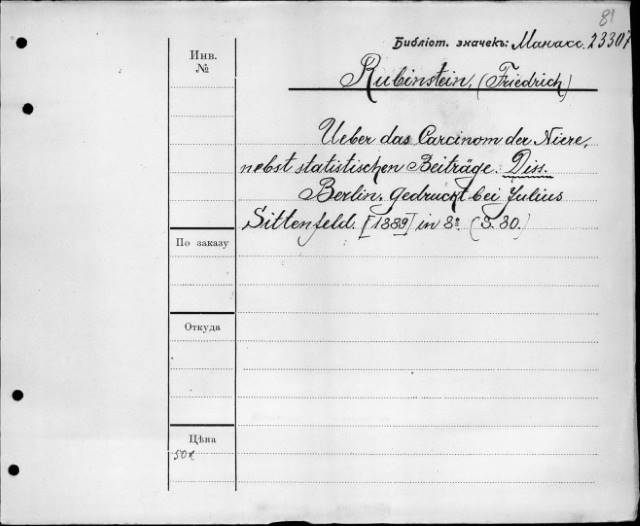 81
Библіот. значекъ: Манасс. 23307
Инв.
№
Rubinstein, (Friedrich)
Ueber das Carcinom der Niere,
nebst statistischen Beiträge. Diss.
Berlin. Gedruckt bei Julius
Sittenfeld. [1889] in 8º (S. 30.)
По заказу
Откуда
Цѣна
50к